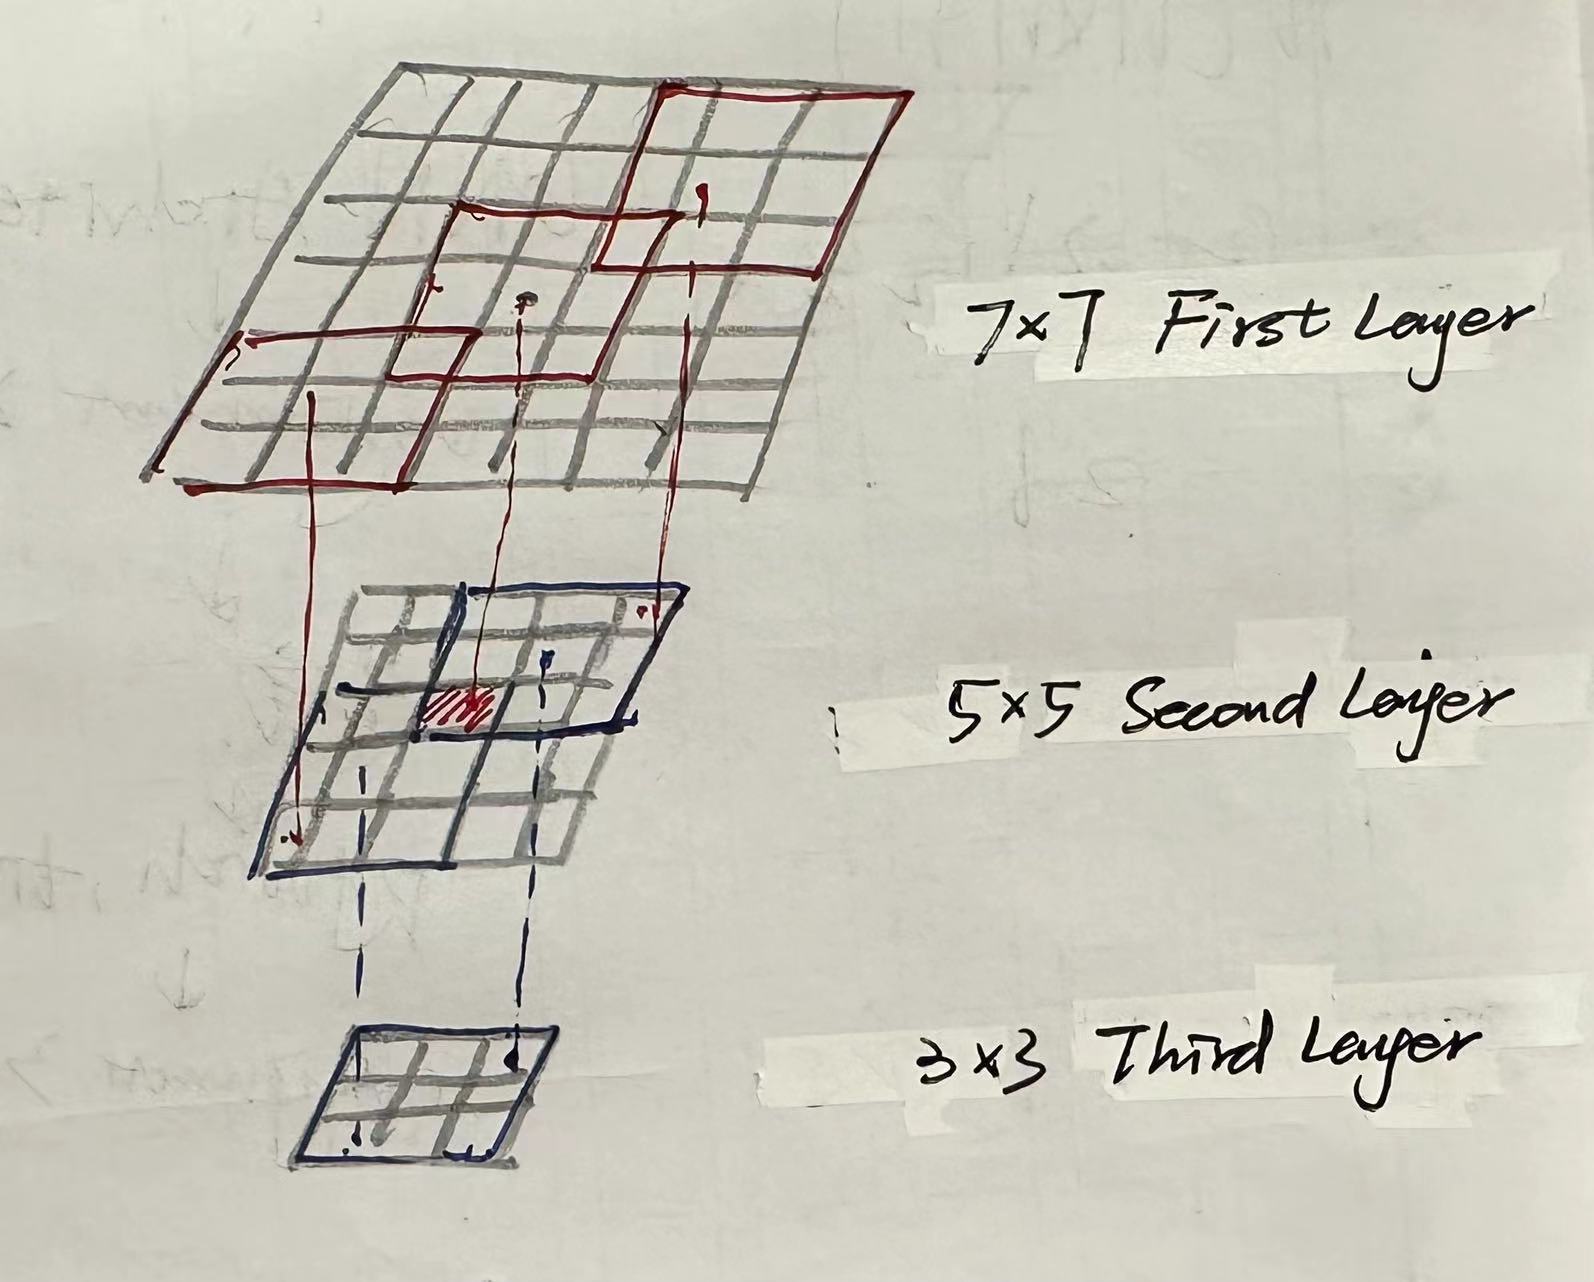 7×7 First Layer
5×5 Second Layer
3×3 Third Layer